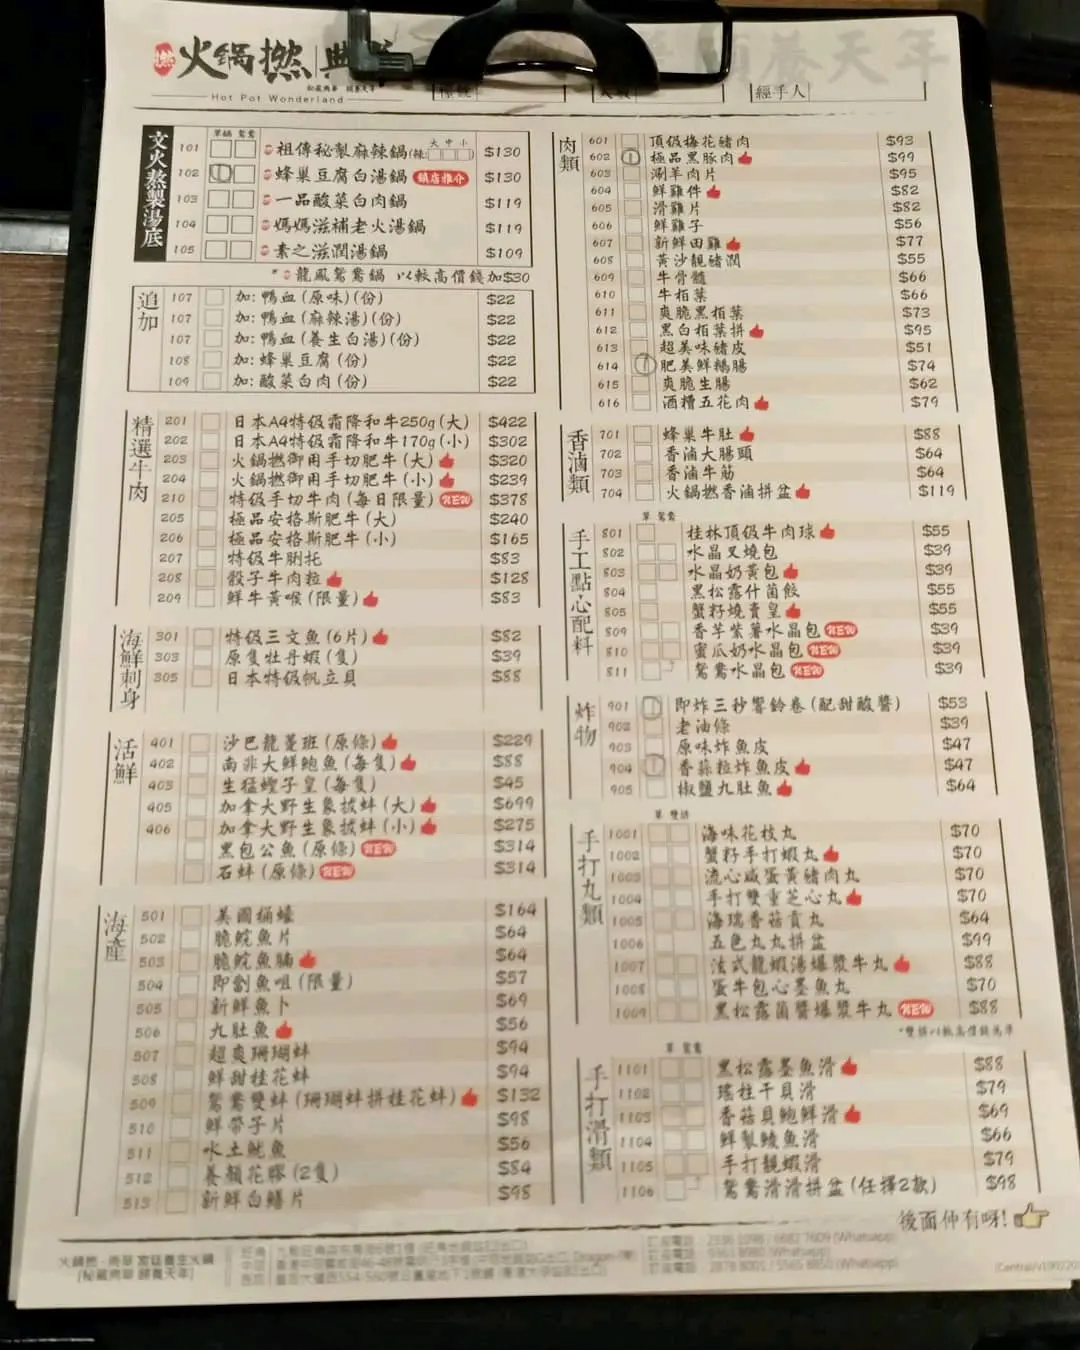 火鍋撚 典
Hot Pot Wonderland
經手人
順養天年
文火熬製湯底
單鍋 鴛鴦
101 祖傳秘製麻辣鍋(辣 大 中 小) $130
102 蜂巢豆腐白湯鍋 鎮店推介 $130
103 一品酸菜白肉鍋 $119
104 媽媽滋補老火湯鍋 $119
105 素之滋潤湯鍋 $109
* 龍鳳鴛鴦鍋 以較高價錢加$30
追加
107 加: 鴨血(原味)(份) $22
107 加: 鴨血(麻辣湯)(份) $22
107 加: 鴨血(養生白湯)(份) $22
108 加: 蜂巢豆腐(份) $22
109 加: 酸菜白肉(份) $22
精選牛肉
201 日本A4特級霜降和牛250g(大) $422
202 日本A4特級霜降和牛170g(小) $302
203 火鍋撚御用手切肥牛(大) $320
204 火鍋撚御用手切肥牛(小) $239
210 特級手切牛肉(每日限量) NEW $378
205 極品安格斯肥牛(大) $240
206 極品安格斯肥牛(小) $165
207 特級牛脷托 $83
208 骰子牛肉粒 $128
209 鮮牛黃喉(限量) $83
海鮮刺身
301 特級三文魚(6片) $82
303 原隻牡丹蝦(隻) $39
305 日本特級帆立貝 $88
活鮮
401 沙巴龍躉班(原條) $229
402 南非大鮮鮑魚(每隻) $88
403 生猛蟶子皇(每隻) $45
405 加拿大野生象拔蚌(大) $699
406 加拿大野生象拔蚌(小) $275
黑包公魚(原條) NEW $314
石蚌(原條) NEW $314
海產
501 美國桶蠔 $164
502 脆鯇魚片 $64
503 脆鯇魚腩 $64
504 即劏魚咀(限量) $57
505 新鮮魚卜 $69
506 九肚魚 $56
507 超爽珊瑚蚌 $94
508 鮮甜桂花蚌 $94
509 鴛鴦雙蚌(珊瑚蚌拼桂花蚌) $132
510 鮮帶子片 $98
511 水土魷魚 $56
512 養顏花膠(2隻) $84
513 新鮮白鱔片 $98
肉類
601 頂級梅花豬肉 $93
602 極品黑豚肉 $99
603 涮羊肉片 $95
604 鮮雞件 $82
605 滑雞片 $82
606 鮮雞子 $56
607 新鮮田雞 $77
608 黃沙靚豬潤 $55
609 牛骨髓 $66
610 牛栢葉 $66
611 爽脆黑栢葉 $73
612 黑白栢葉拼 $95
613 超美味豬皮 $51
614 肥美鮮鵝腸 $74
615 爽脆生腸 $62
616 酒糟五花肉 $79
香滷類
701 蜂巢牛肚 $88
702 香滷大腸頭 $64
703 香滷牛筋 $64
704 火鍋撚香滷拼盆 $119
手工點心配料
單 鴛鴦
801 桂林頂級牛肉球 $55
802 水晶叉燒包 $39
803 水晶奶黃包 $39
804 黑松露什菌餃 $55
805 蟹籽燒賣皇 $55
809 香芋紫薯水晶包 NEW $39
810 蜜瓜奶水晶包 NEW $39
811 鴛鴦水晶包 NEW $39
炸物
901 即炸三秒響鈴卷(配甜酸醬) $53
902 老油條 $39
903 原味炸魚皮 $47
904 香蒜粒炸魚皮 $47
905 椒鹽九肚魚 $64
手打丸類
單 雙拼
1001 海味花枝丸 $70
1002 蟹籽手打蝦丸 $70
1003 流心咸蛋黃豬肉丸 $70
1004 手打雙重芝心丸 $70
1005 海瑞香菇貢丸 $64
1006 五色丸丸拼盆 $99
1007 法式龍蝦湯爆漿牛丸 $88
1008 蛋牛包心墨魚丸 $70
1009 黑松露菌醬爆漿牛丸 NEW $88
*雙拼以較高價錢為準
手打滑類
單 鴛鴦
1101 黑松露墨魚滑 $88
1102 瑤柱干貝滑 $79
1103 香菇貝鮑鮮滑 $69
1104 鮮製鯪魚滑 $66
1105 手打靚蝦滑 $79
1106 鴛鴦滑滑拼盆(任擇2款) $98
後面仲有呀!